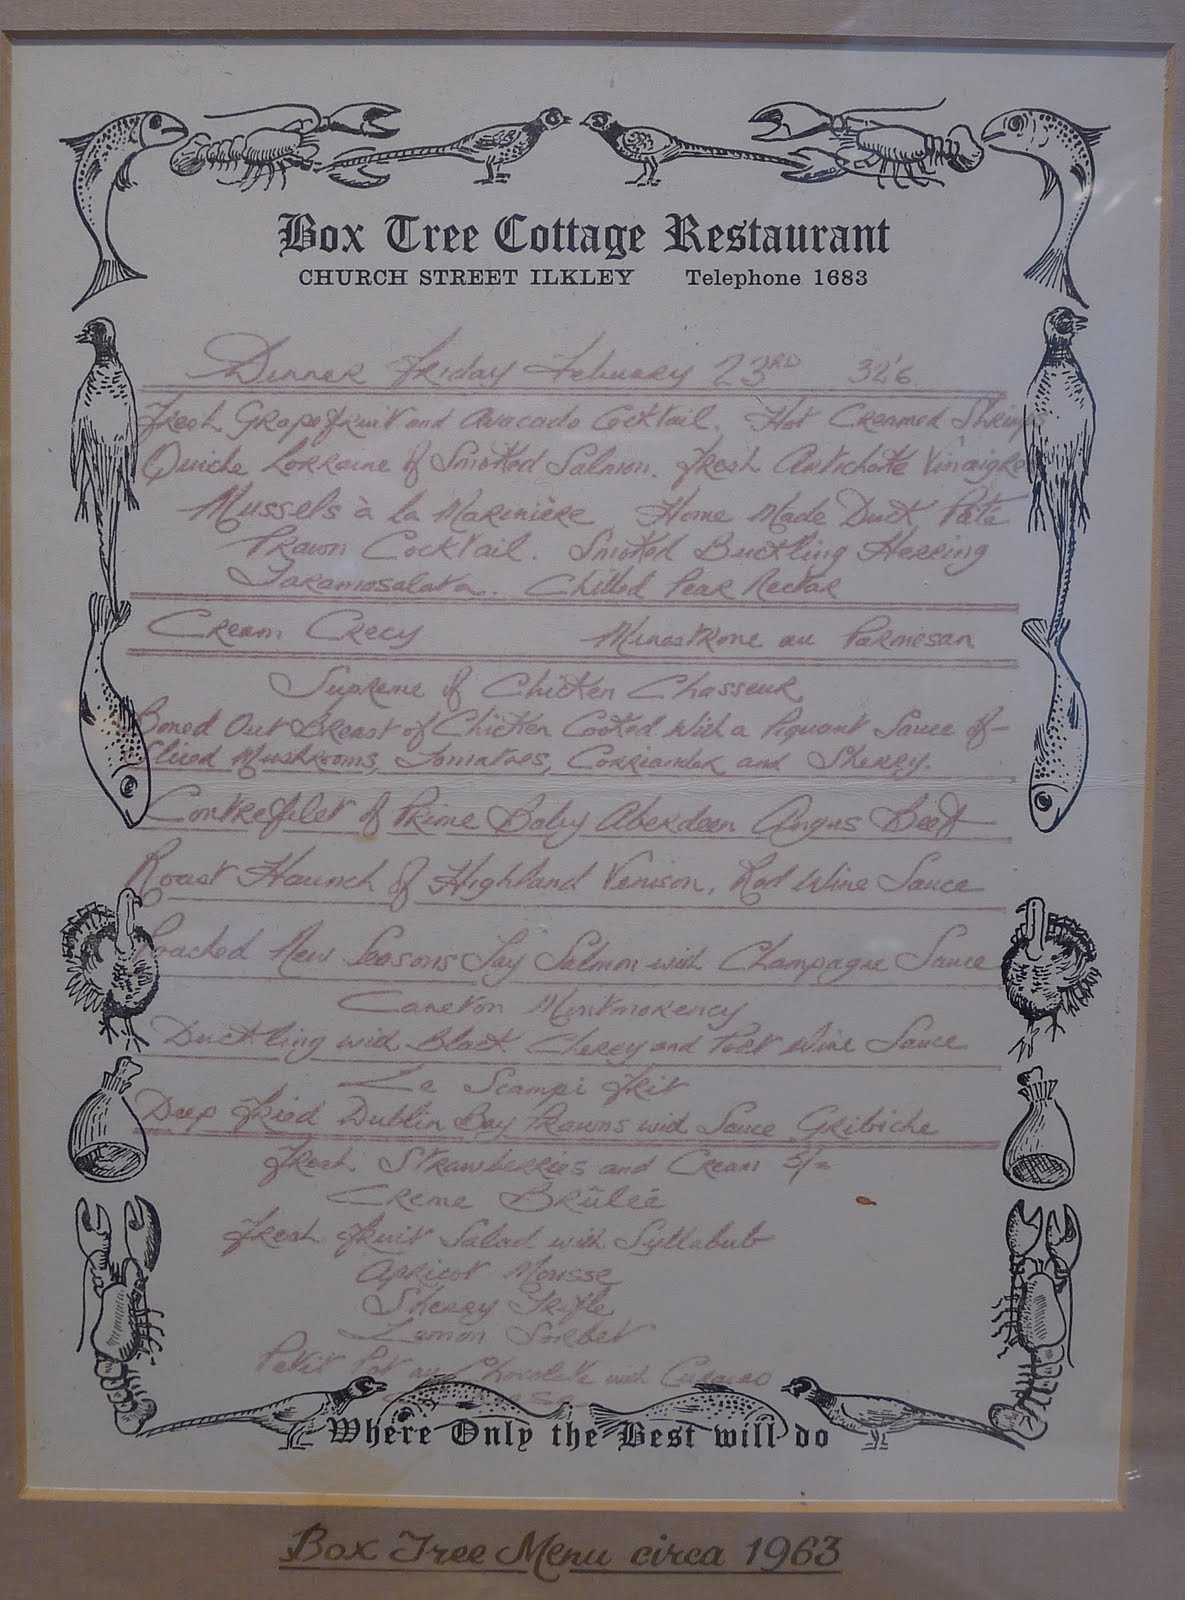 Box Tree Cottage Restaurant
CHURCH STREET ILKLEY Telephone 1683
Dinner Friday February 23RD 32'6
Fresh Grapefruit and Avacado Cocktail. Hot Creamed Shrimps
Quiche Lorraine of Smoked Salmon. Fresh Artichoke Vinaigre
Mussels à la Marinière Home Made Duck Pâte
Prawn Cocktail. Smoked Buckling Herring
Taramosalata. Chilled Pear Nectar
Cream Crecy Minestrone au Parmesan
Supreme of Chicken Chasseur
Boned Out Breast of Chicken Cooked with a Piquant Sauce of
Sliced Mushrooms, Tomatoes, Corriander and Sherry.
Contrefilet of Prime Baby Aberdeen Angus Beef
Roast Haunch of Highland Venison, Red Wine Sauce
Poached New Seasons Tay Salmon with Champagne Sauce
Caneton Montmorency
Duckling with Black Cherry and Port Wine Sauce
Le Scampi Frit
Deep Fried Dublin Bay Prawns with Sauce Gribiche
Fresh Strawberries and Cream 5/=
Creme Brûlée
Fresh Fruit Salad with Syllabub
Apricot Mousse
Sherry Trifle
Lemon Sorbet
Petit Pot au Chocolate with Curacao
Where Only the Best will do
Box Tree Menu circa 1963